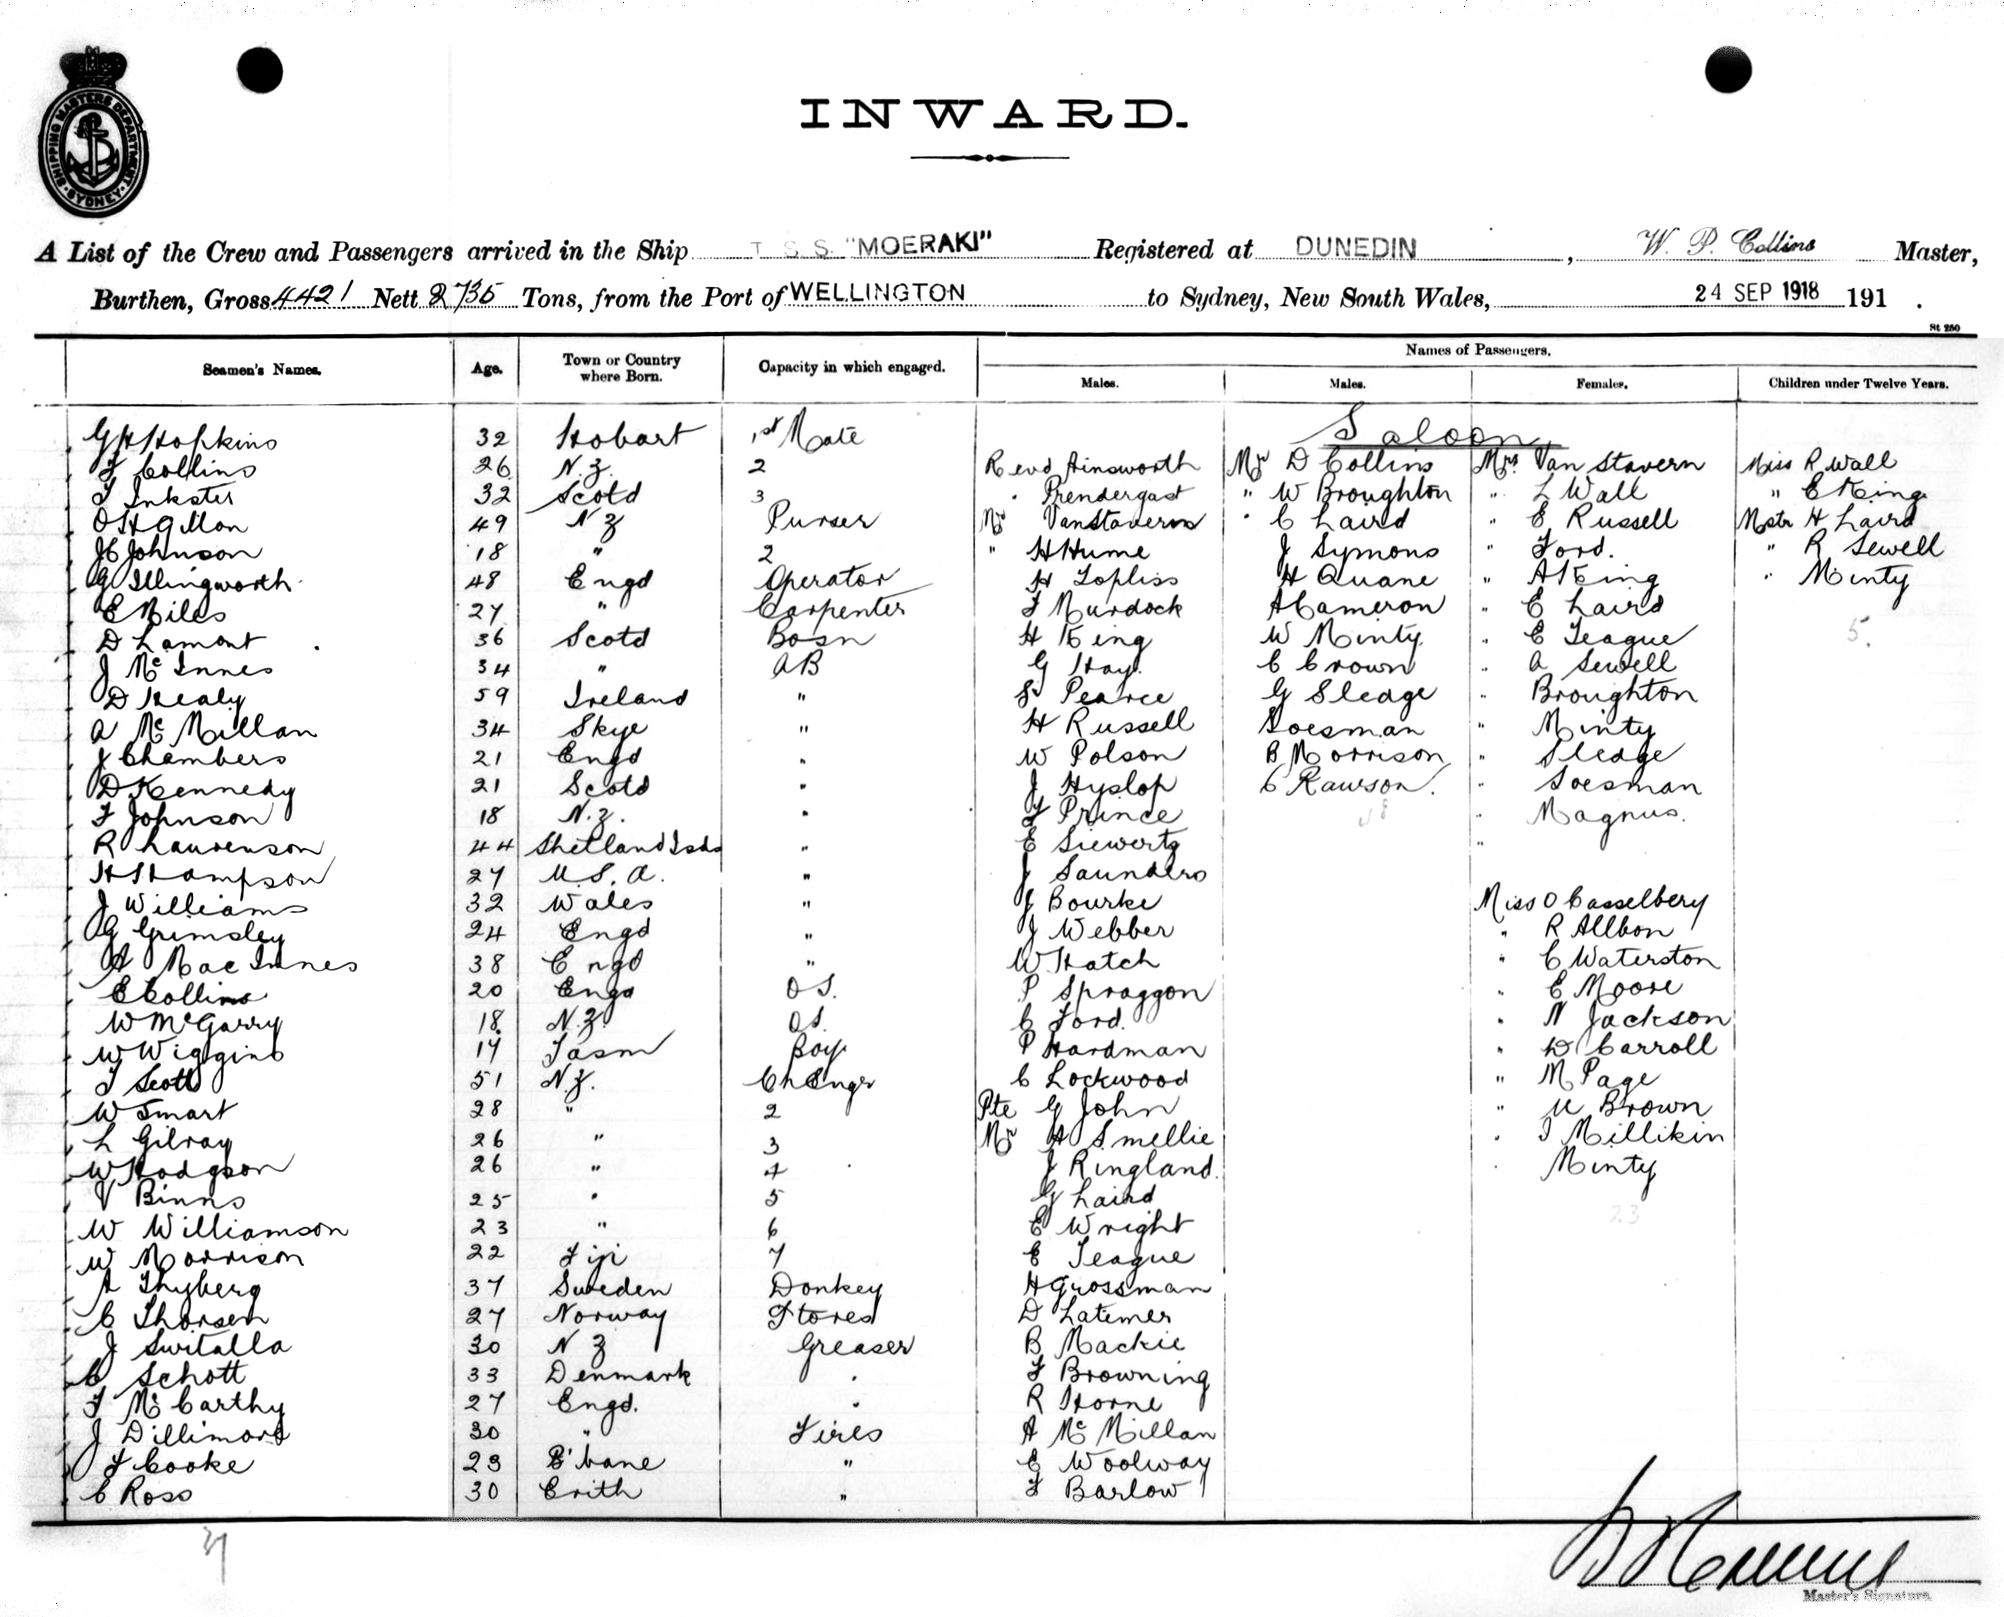 SHIPPING MASTERS DEPARTMENT SYDNEY
INWARD.
A List of the Crew and Passengers arrived in the Ship T. S. S. "MOERAKI" Registered at DUNEDIN, W. P. Collins Master,
Burthen, Gross 4421 Nett 2735 Tons, from the Port of WELLINGTON to Sydney, New South Wales, 24 SEP 1918 191 .
St 250
Seamen's Names. Age. Town or Country where Born. Capacity in which engaged. Names of Passengers.
Males. Males. Females. Children under Twelve Years.
Saloon
G H Hopkins 32 Hobart 1st Mate
F Collins 26 N.Z. 2 Revd Ainsworth Mr D Collins Mrs Van Stavern Miss R Wall
T Inkster 32 Scotd 3 " Prendergast " W Broughton " L Wall " E King
O H Gillon 49 N Z Purser Mr VanStavern " C Laird " E Russell Mstr H Laird
J C Johnson 18 " 2 " H Hume J Symons " Ford. " R Sewell
G Illingworth 48 Engd Operator H Topliss H Quane " A King " Minty
E Miles 27 " Carpenter F Murdock A Cameron " E Laird
D Lamont 36 Scotd Bosn H King W Minty " E Teague 5.
J McInnes 34 " AB G Hay C Crown " A Sewell
D Healy 59 Ireland " S Pearce G Sledge " Broughton
A McMillan 34 Skye " H Russell Soesman " Minty
J Chambers 21 Engd " W Polson B Morrison " Sledge
D Kennedy 21 Scotd " J Hyslop C Rawson. " Soesman
F Johnson 18 N.Z. " F Prince " Magnus.
R Laurenson 44 Shetland Isds " E Siewertz "
H Hampson 27 U.S.A. " J Saunders
J Williams 32 Wales " J Bourke Miss O Casselbery
G Grimsley 24 Engd " J Webber " R Allbon
A MacInnes 38 Engd " W Hatch " C Waterston
E Collins 20 Engd OS. P Spraggon " E Moore
W McGarry 18 N.Z. OS. C Ford. " N Jackson
W Wiggins 17 Tasm Boy P Hardman " D Carroll
T Scott 51 N.Z. Ch Enger C Lockwood " M Page
W Smart 28 " 2 Pte G John " U Brown
L Gilray 26 " 3 Mr A Smellie " I Millikin
W Hodgson 26 " 4 J Ringland. " Minty
V Binns 25 " 5 G Laird
W Williamson 23 " 6 E Wright 23
W Morrison 22 Fiji 7 E Teague
A Thyberg 37 Sweden Donkey H Grossman
C Thorsen 27 Norway Stores D Latimer
J Switalla 30 N Z Greaser B Mackie
C Schott 33 Denmark " F Browning
F McCarthy 27 Engd. " R Horne
J Dillimore 30 " Fires A McMillan
F Cooke 23 B'bane " E Woolway
C Ross 30 Erith " F Barlow
37
Master's Signature.